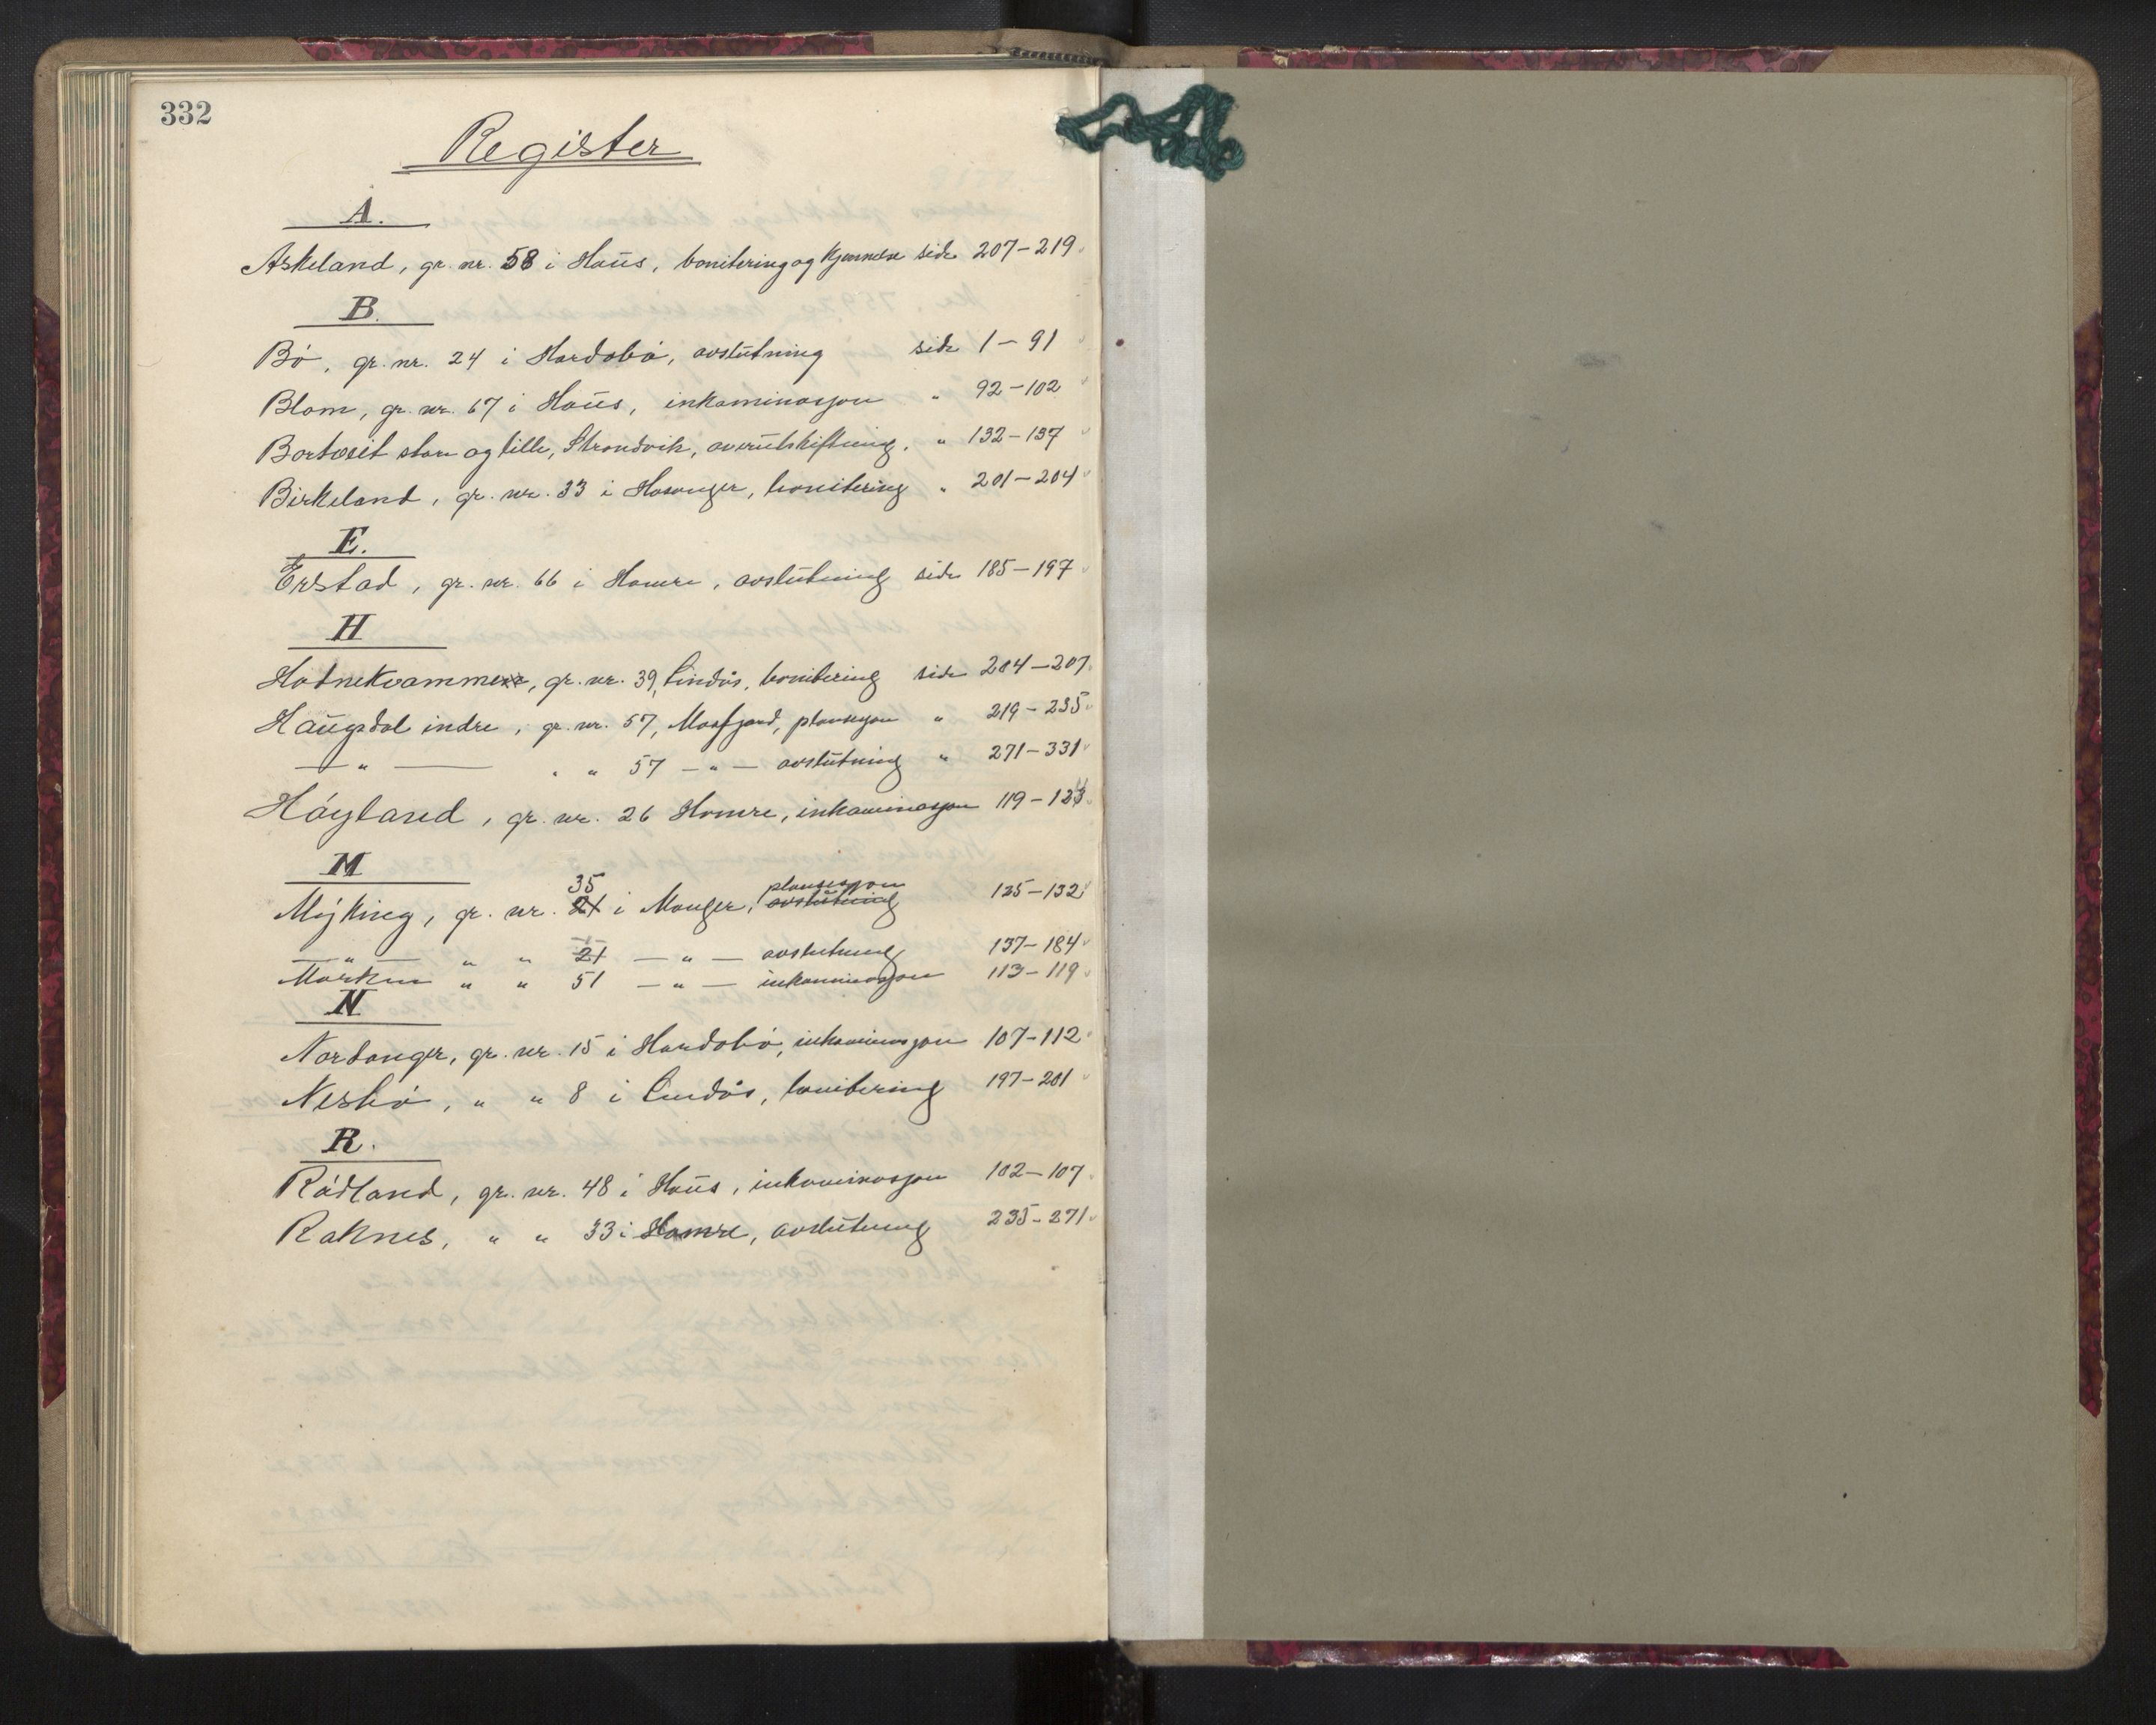 332
Register
A.
Askeland, gr. nr. 58 i Haus, bonitering og kjennelse side 207-219
B.
Bö, gr. nr. 24 i Hordabö, avslutning side 1-91
Blom, gr. nr. 67 i Haus, inkaminasjon " 92-102
Bortveit store og lille, Strandvik, overutskiftning, " 132-137
Birkeland, gr. nr. 33 i Hosanger, bonitering " 201-204
E.
Erstad, gr. nr. 66 i Hamre, avslutning side 185-197
H
Hodnekvamme, gr. nr. 39, Lindås, bonitering side 204-207
Haugsdal indre, gr. nr. 57, Masfjord, plansesjon " 219-235
— " — " " 57 — " — avslutning " 271-331
Höyland, gr. nr. 26 Hamre, inkaminasjon 119-123
M
35 plansesjon
Mjöking, gr. nr. 21 i Manger, avslutning 125-132
— " — " " 21 — " — avslutning 137-184
Marken " " 51 — " — inkaminasjon 113-119
N
Nordanger, gr. nr. 15 i Hordabö, inkaminasjon 107-112
Nesbö, " " 8 i Lindås, bonitering 197-201
R.
Rödland, gr. nr. 48 i Haus, inkaminasjon 102-107
Raknes, " " 33 i Hamre, avslutning 235-271